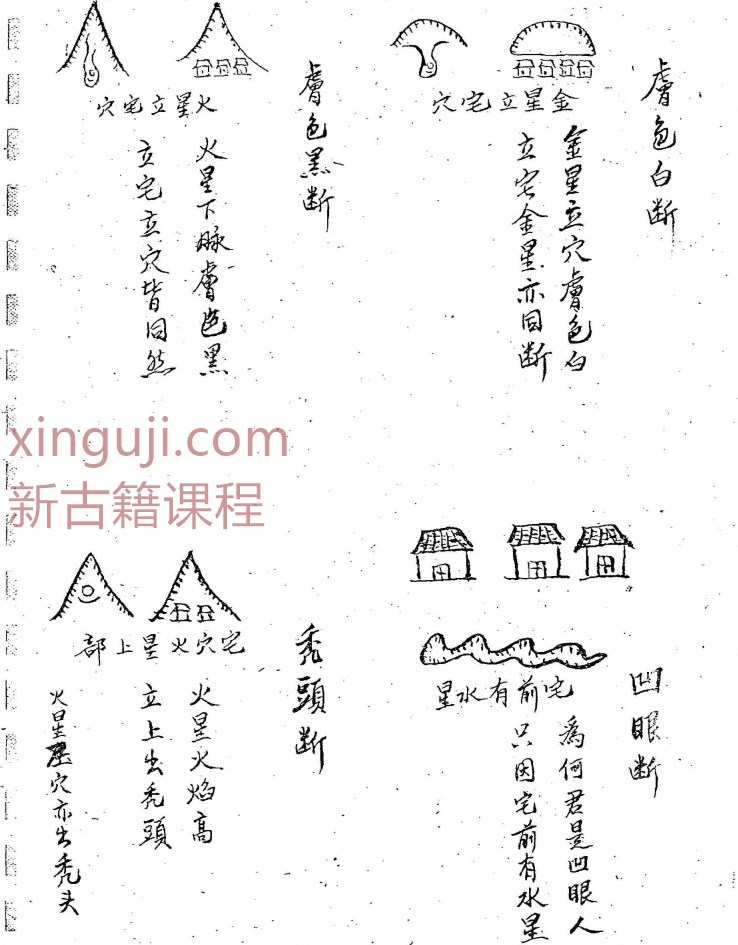 膚色白断
金星立宅穴
金星立穴膚色白
立宅金星亦同断
膚色黑断
火星立宅穴
火星下脉膚色黑
立宅立穴皆同然
xinguji.com
新古籍课程
凹眼断
宅前有水星
為何君是凹眼人
只因宅前有水星
秃頭断
宅穴火星上部
火星火焰高
立上出秃頭
火星立穴亦出秃头